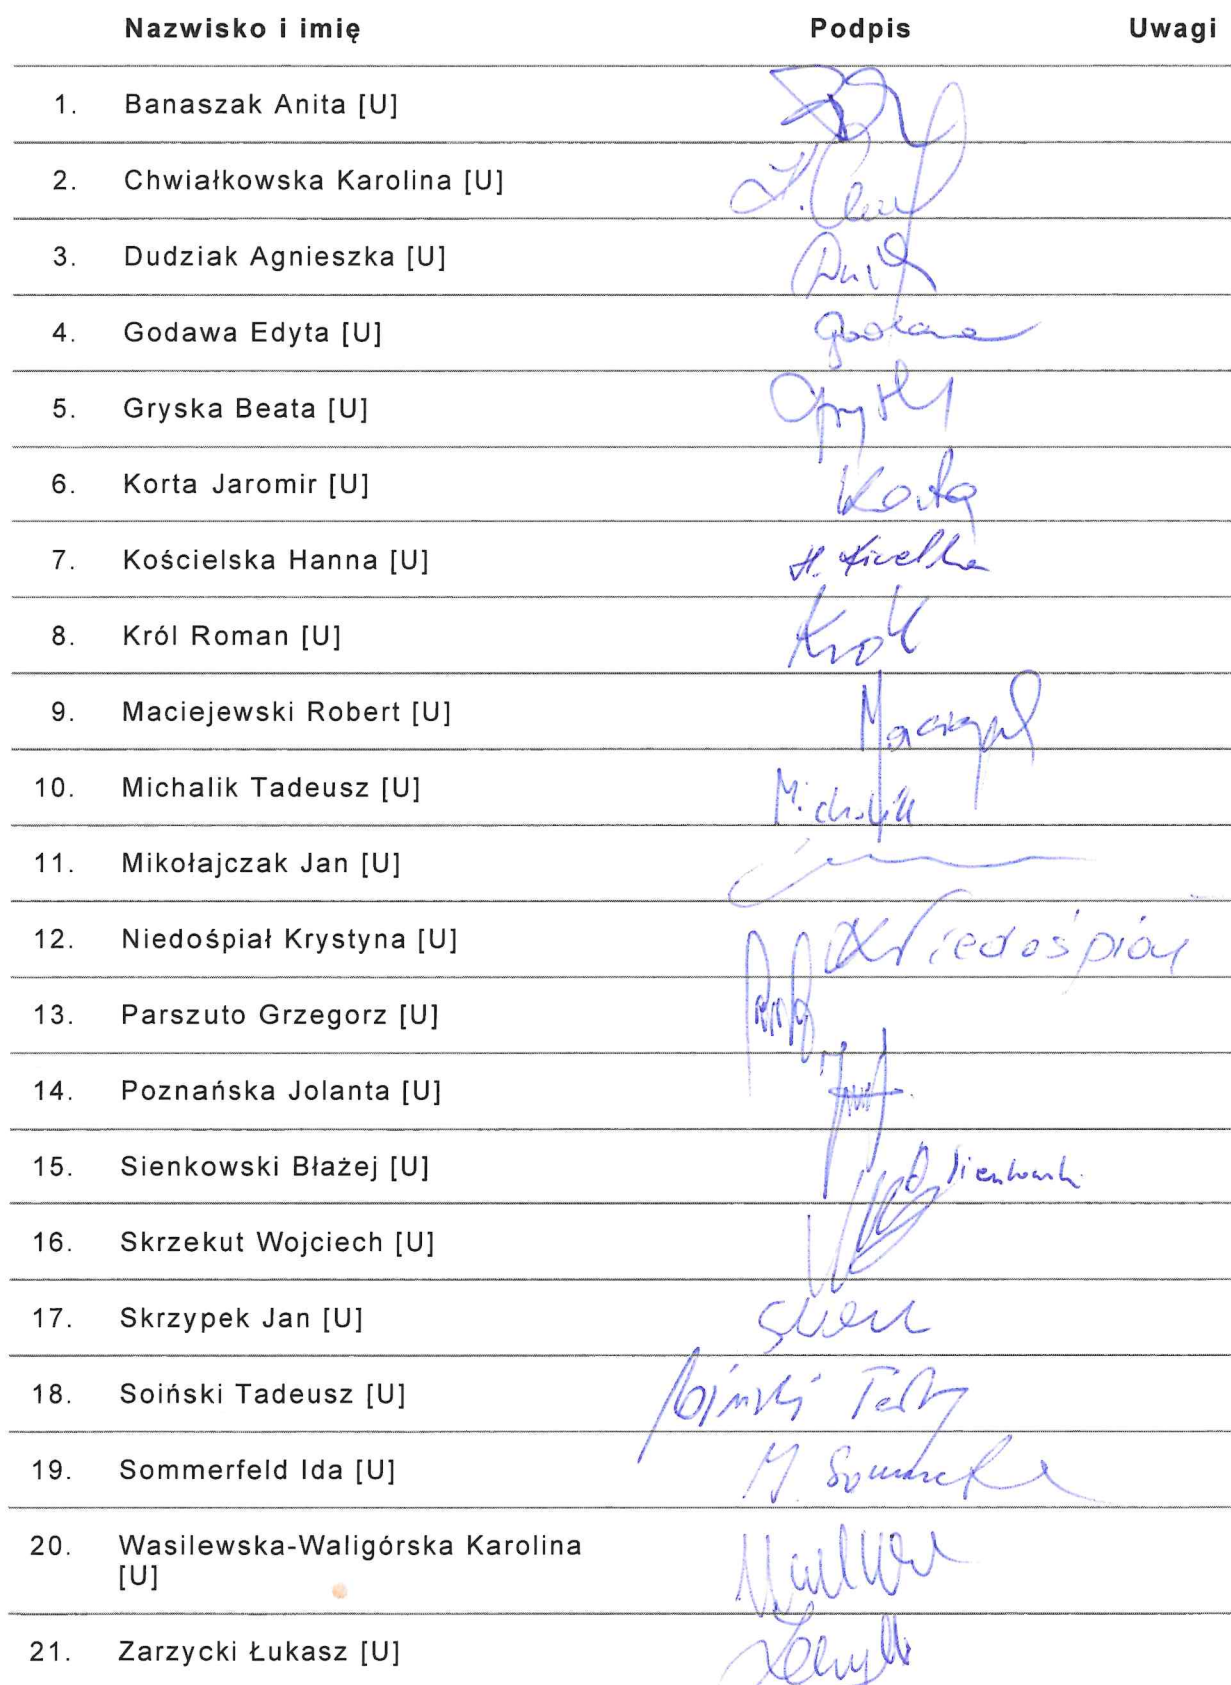 Nazwisko i imię Podpis Uwagi
1. Banaszak Anita [U]
2. Chwiałkowska Karolina [U]
3. Dudziak Agnieszka [U]
4. Godawa Edyta [U]
5. Gryska Beata [U]
6. Korta Jaromir [U] Korta
7. Kościelska Hanna [U]
8. Król Roman [U] Król
9. Maciejewski Robert [U]
10. Michalik Tadeusz [U] Michalik
11. Mikołajczak Jan [U]
12. Niedośpiał Krystyna [U] KNiedośpiał
13. Parszuto Grzegorz [U]
14. Poznańska Jolanta [U]
15. Sienkowski Błażej [U] B Sienkowski
16. Skrzekut Wojciech [U]
17. Skrzypek Jan [U]
18. Soiński Tadeusz [U] Soiński
19. Sommerfeld Ida [U]
20. Wasilewska-Waligórska Karolina
[U]
21. Zarzycki Łukasz [U]